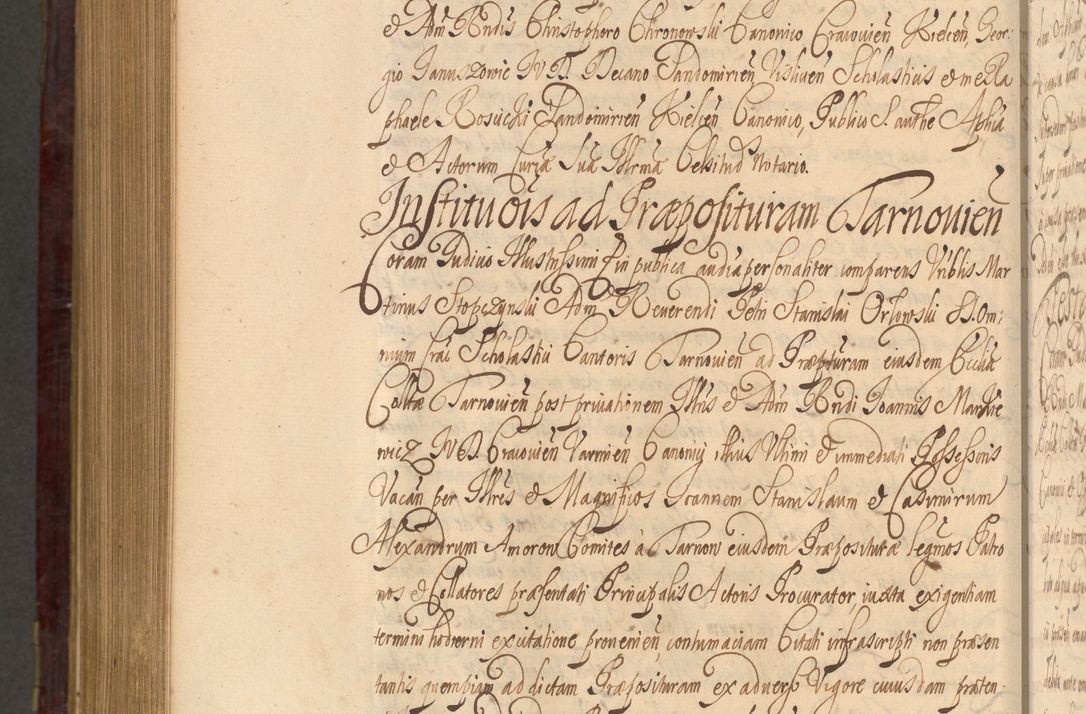 & Adm Rndis Christophoro Chronowski Canonico Cracovien Kielcen, Geor:
gio Januszowic JVD. Decano Sandomirien Vislicen Scholastius & me Ra
phaele Rosicki Sandomirien Kielcen Canonico, Publico S. authe Aplica
& Actorum Curiæ Suæ Illrmæ Celsitud Notario.
Institutois ad Præposituram Tarnovien
Coram Judicio Illustrissimi in publica audia personaliter comparens Vrblis Mar
tinus Stopczynski Adm Reverendi Petri Stanislai Orlowski SS. Om:
nium Crac Scholastici Cantoris Tarnovien ad Præpturam eiusdem Ecclæ
Colltæ Tarnovien post privationem Illris & Adm Rndi Joannis Markie
wicz JVD. Cracovien Varmien Canonici illius Vltimi & immediati Possessoris
Vacan per Illres & Magnificos Joannem Stanislaum & Casimirum
Alexandrum Amorow Comites à Tarnow eiusdem Præposituræ legmos Patro
nos & Collatores præsentati Principalis Actoris Procurator, iuxta exigentiam
termini hodierni ex citatione provenien, contumaciam Citati infrascripti non præsen
tantis quempiam ad dictam Præposituram ex adverso Vigore cuiusdam præten